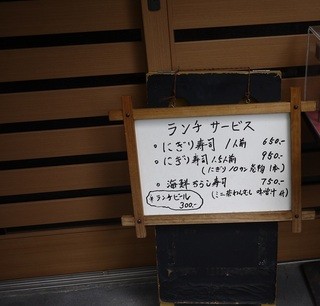 ランチ サービス
○ にぎり寿司 1人前 650.-
○ にぎり寿司 1.5人前 950.-
(にぎり10カン 巻物1本)
○ 海鮮ちらし寿司 750.-
(ミニ茶わんむし 味噌汁付)
ランチビール
300.-